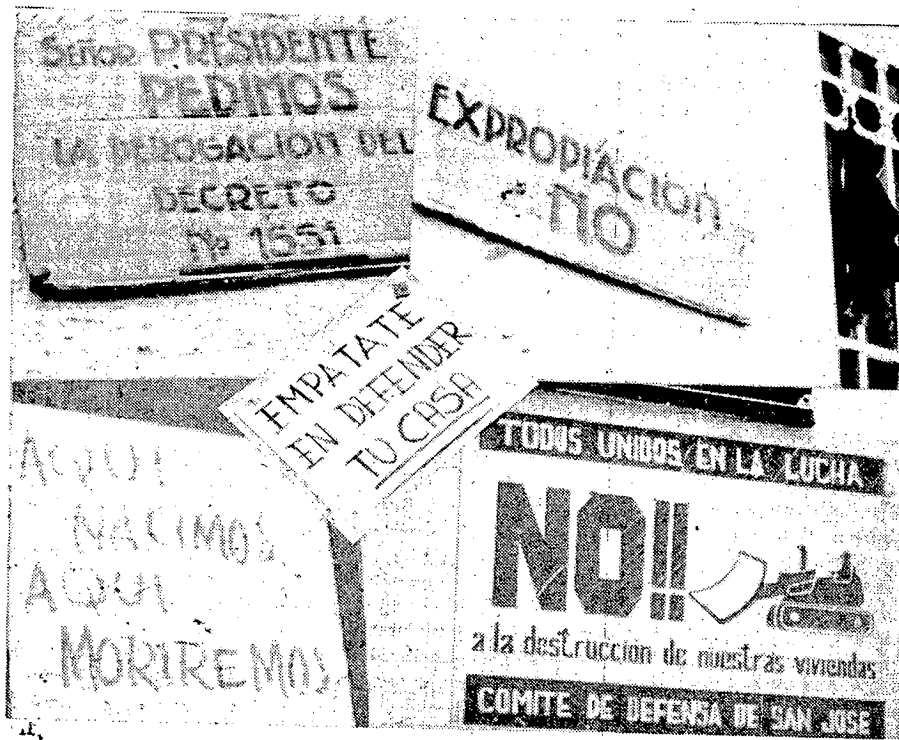 SEÑOR PRESIDENTE
PEDIMOS
LA DEROGACION DEL
DECRETO
Nº 1551
EXPROPIACION
NO
EMPATATE
EN DEFENDER
TU CASA
AQUI
NACIMOS
AQUI
MORIREMOS
TODOS UNIDOS EN LA LUCHA
NO!!
a la destruccion de nuestras viviendas
COMITE DE DEFENSA DE SAN JOSE